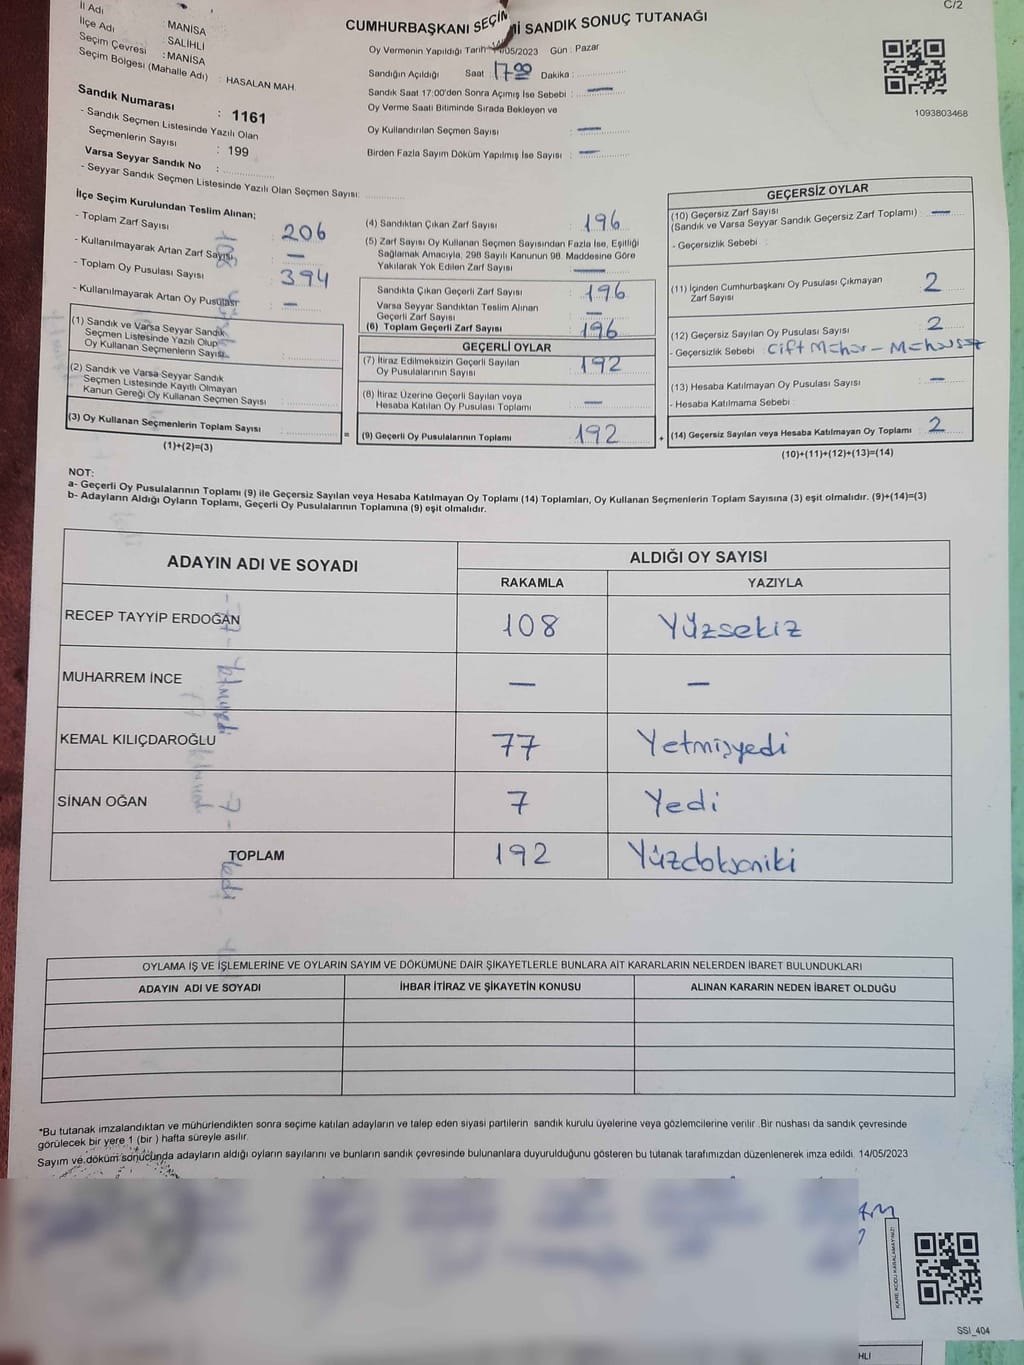 C/2
CUMHURBAŞKANI SEÇİMİ SANDIK SONUÇ TUTANAĞI
İl Adı : MANİSA
İlçe Adı : SALİHLİ
Seçim Çevresi : MANİSA
Seçim Bölgesi (Mahalle Adı) : HASALAN MAH.
Sandık Numarası : 1161
- Sandık Seçmen Listesinde Yazılı Olan
Seçmenlerin Sayısı : 199
Varsa Seyyar Sandık No :
- Seyyar Sandık Seçmen Listesinde Yazılı Olan Seçmen Sayısı:
Oy Vermenin Yapıldığı Tarih /05/2023 Gün : Pazar
Sandığın Açıldığı Saat 17.00 Dakika :
Sandık Saat 17:00'den Sonra Açımış İse Sebebi : —
Oy Verme Saati Bitiminde Sırada Bekleyen ve
Oy Kullandırılan Seçmen Sayısı : —
Birden Fazla Sayım Döküm Yapılmış İse Sayısı : —
1093803468
İlçe Seçim Kurulundan Teslim Alınan;
- Toplam Zarf Sayısı : 206
- Kullanılmayarak Artan Zarf Sayısı : —
- Toplam Oy Pusulası Sayısı : 394
- Kullanılmayarak Artan Oy Pusulası : —
(1) Sandık ve Varsa Seyyar Sandık
Seçmen Listesinde Yazılı Olup
Oy Kullanan Seçmenlerin Sayısı :
(2) Sandık ve Varsa Seyyar Sandık
Seçmen Listesinde Kayıtlı Olmayan
Kanun Gereği Oy Kullanan Seçmen Sayısı :
(3) Oy Kullanan Seçmenlerin Toplam Sayısı :
(1)+(2)=(3)
=
(4) Sandıktan Çıkan Zarf Sayısı : 196
(5) Zarf Sayısı Oy Kullanan Seçmen Sayısından Fazla İse, Eşitliği
Sağlamak Amacıyla, 298 Sayılı Kanunun 98. Maddesine Göre
Yakılarak Yok Edilen Zarf Sayısı : —
Sandıkta Çıkan Geçerli Zarf Sayısı : 196
Varsa Seyyar Sandıktan Teslim Alınan
Geçerli Zarf Sayısı : —
(6) Toplam Geçerli Zarf Sayısı : 196
GEÇERLİ OYLAR
(7) İtiraz Edilmeksizin Geçerli Sayılan
Oy Pusulalarının Sayısı : 192
(8) İtiraz Üzerine Geçerli Sayılan veya
Hesaba Katılan Oy Pusulası Toplamı : —
(9) Geçerli Oy Pusulalarının Toplamı : 192
+
GEÇERSİZ OYLAR
(10) Geçersiz Zarf Sayısı
(Sandık ve Varsa Seyyar Sandık Geçersiz Zarf Toplamı) : —
- Geçersizlik Sebebi :
(11) İçinden Cumhurbaşkanı Oy Pusulası Çıkmayan
Zarf Sayısı : 2
(12) Geçersiz Sayılan Oy Pusulası Sayısı : 2
- Geçersizlik Sebebi : Çift Mühür –
(13) Hesaba Katılmayan Oy Pusulası Sayısı : —
- Hesaba Katılmama Sebebi :
(14) Geçersiz Sayılan veya Hesaba Katılmayan Oy Toplamı : 2
(10)+(11)+(12)+(13)=(14)
NOT:
a- Geçerli Oy Pusulalarının Toplamı (9) ile Geçersiz Sayılan veya Hesaba Katılmayan Oy Toplamı (14) Toplamları, Oy Kullanan Seçmenlerin Toplam Sayısına (3) eşit olmalıdır. (9)+(14)=(3)
b- Adayların Aldığı Oyların Toplamı, Geçerli Oy Pusulalarının Toplamına (9) eşit olmalıdır.
ADAYIN ADI VE SOYADI ALDIĞI OY SAYISI
RAKAMLA YAZIYLA
RECEP TAYYİP ERDOĞAN 108 Yüzsekiz
MUHARREM İNCE — —
KEMAL KILIÇDAROĞLU 77 Yetmişyedi
SİNAN OĞAN 7 Yedi
TOPLAM 192 Yüzdoksaniki
OYLAMA İŞ VE İŞLEMLERİNE VE OYLARIN SAYIM VE DÖKÜMÜNE DAİR ŞİKAYETLERLE BUNLARA AİT KARARLARIN NELERDEN İBARET BULUNDUKLARI
ADAYIN ADI VE SOYADI İHBAR İTİRAZ VE ŞİKAYETİN KONUSU ALINAN KARARIN NEDEN İBARET OLDUĞU
*Bu tutanak imzalandıktan ve mühürlendikten sonra seçime katılan adayların ve talep eden siyasi partilerin sandık kurulu üyelerine veya gözlemcilerine verilir .Bir nüshası da sandık çevresinde
görülecek bir yere 1 (bir ) hafta süreyle asılır.
Sayım ve döküm sonucunda adayların aldığı oyların sayılarını ve bunların sandık çevresinde bulunanlara duyurulduğunu gösteren bu tutanak tarafımızdan düzenlenerek imza edildi. 14/05/2023
KARE KODU KARALAMAYINIZ!
SSI_404
HLİ